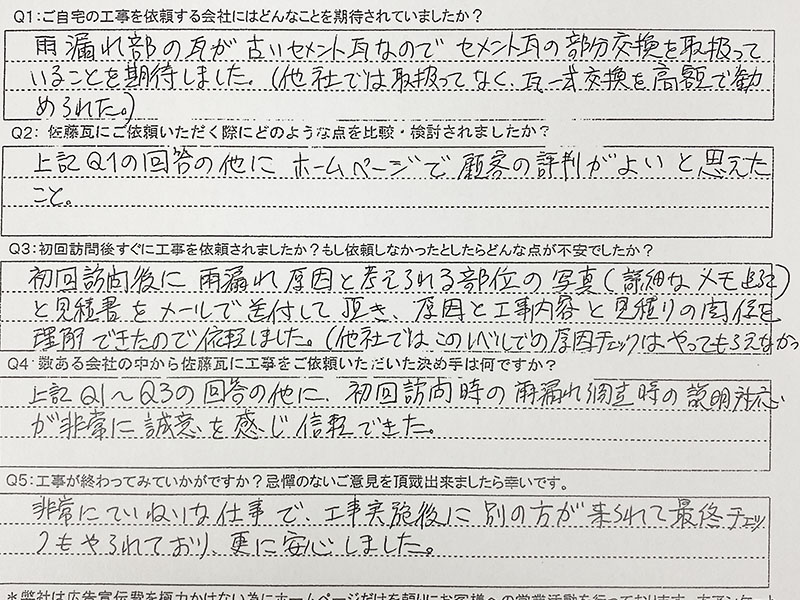 Q1:ご自宅の工事を依頼する会社にはどんなことを期待されていましたか？
雨漏れ部の瓦が古いセメント瓦なのでセメント瓦の部分交換を取扱って
いることを期待しました。(他社では取扱ってなく、瓦一式交換を高額で勧
められた。)
Q2: 佐藤瓦にご依頼いただく際にどのような点を比較・検討されましたか？
上記Q1の回答の他にホームページで顧客の評判がよいと思えた
こと。
Q3:初回訪問後すぐに工事を依頼されましたか？もし依頼しなかったとしたらどんな点が不安でしたか？
初回訪問後に雨漏れ原因と考えられる部位の写真(詳細なメモ
と見積書をメールで送付して頂き、原因と工事内容と見積りの関係を
理解できたので依頼しました。(他社ではこのレベルでの原因チェックはやってもらえなかっ
Q4: 数ある会社の中から佐藤瓦に工事をご依頼いただいた決め手は何ですか？
上記Q1〜Q3の回答の他に、初回訪問時の雨漏れ調査時の説明対応
が非常に誠意を感じ信頼できた。
Q5:工事が終わってみていかがですか？忌憚のないご意見を頂戴出来ましたら幸いです。
非常にていねいな仕事で、工事実施後に別の方が来られて最終チェッ
クもやられており、更に安心しました。
*弊社は広告宣伝費を極力かけない為にホームページだけを頼りにお客様への営業活動を行っております。本アンケート